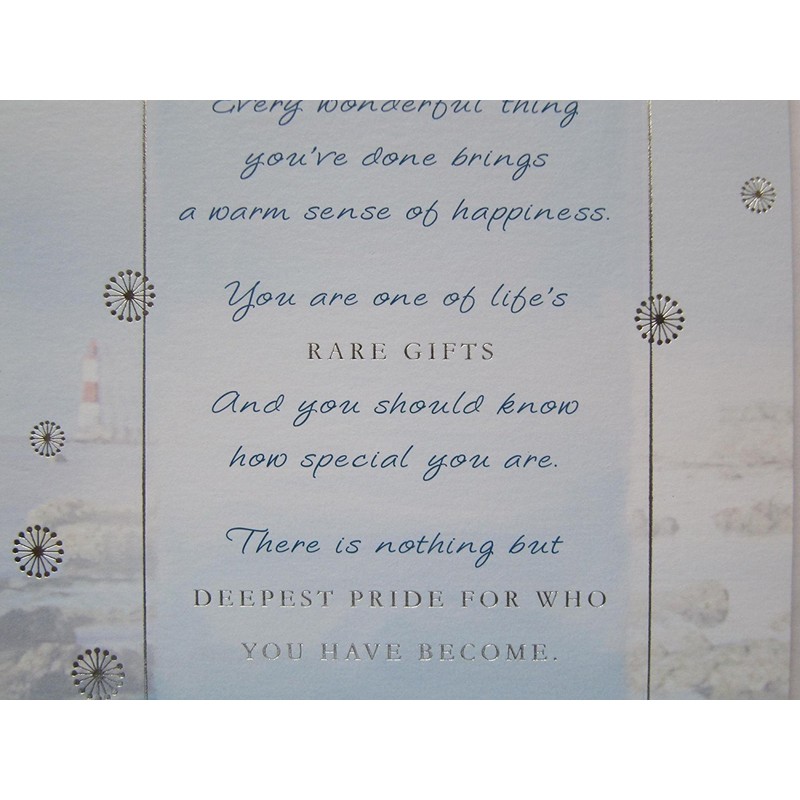 Every wonderful thing
you've done brings
a warm sense of happiness.
You are one of life's
RARE GIFTS
And you should know
how special you are.
There is nothing but
DEEPEST PRIDE FOR WHO
YOU HAVE BECOME.